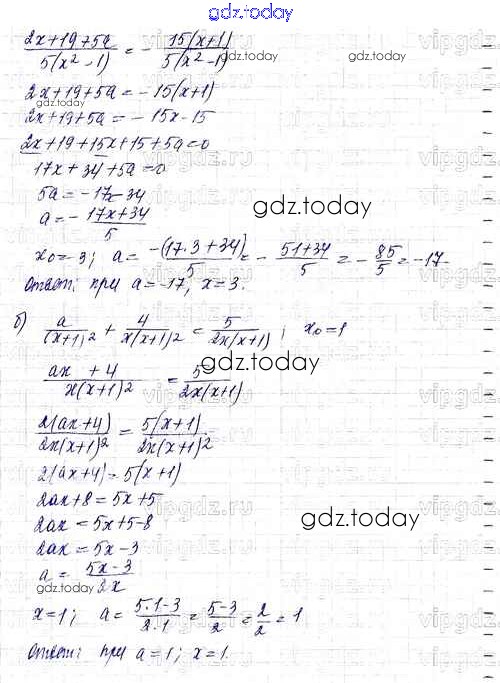 gdz.today
(2x+19+5a)/(5(x²-1)) = - (15(x+1))/(5(x²-1))
2x+19+5a = -15(x+1)
2x+19+5a = -15x-15
2x+19+15x+15+5a=0
17x+34+5a=0
5a=-17x-34
a= - (17x+34)/5
x₀=3; a= (-(17·3+34))/5 = - (51+34)/5 = - 85/5 = -17
Ответ: при a=-17, x=3.
б) a/(x+1)² + 4/(x(x+1)²) = 5/(2x(x+1)); x₀=1
(ax+4)/(x(x+1)²) = 5/(2x(x+1))
(2(ax+4))/(2x(x+1)²) = (5(x+1))/(2x(x+1)²)
2(ax+4)=5(x+1)
2ax+8=5x+5
2ax=5x+5-8
2ax=5x-3
a= (5x-3)/(2x)
x=1; a= (5·1-3)/(2·1) = (5-3)/2 = 2/2 = 1
Ответ: при a=1; x=1.
gdz.today
gdz.today
gdz.today
gdz.today
gdz.today
gdz.today
vipgdz.ru